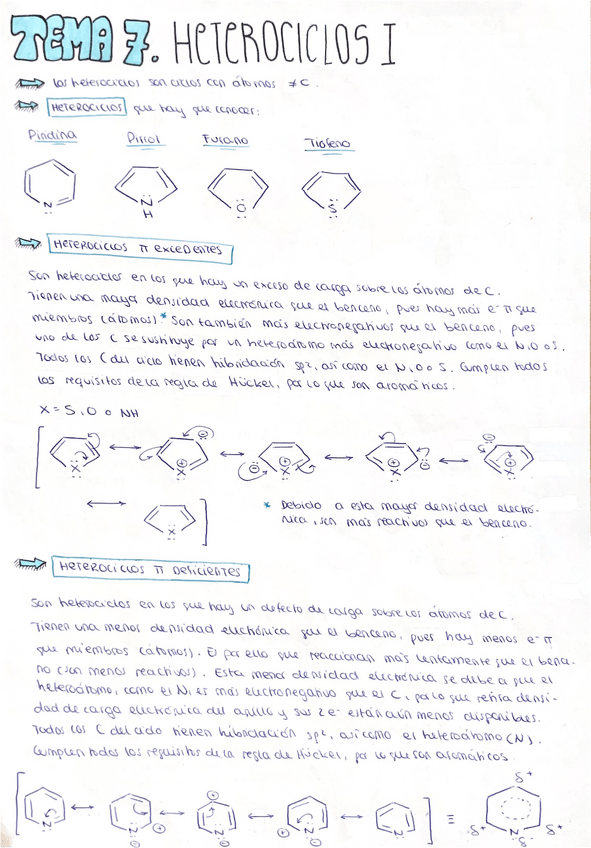 TEMA 7. HETEROCICLOS I
Los heterociclos son ciclos con átomos ≠ C.
HETEROCICLOS que hay que conocer:
Piridina Pirrol Furano Tiofeno
N N H O S
HETEROCICLOS π EXCEDENTES
Son heterociclos en los que hay un exceso de carga sobre los átomos de C.
Tienen una mayor densidad electrónica que el benceno, pues hay más e⁻ π que
miembros (átomos)* Son también más electronegativos que el benceno, pues
uno de los C se sustituye por un heteroátomo más electronegativo como el N, O o S.
Todos los C del ciclo tienen hibridación sp², así como el N, O o S. Cumplen todos
los requisitos de la regla de Hückel, por lo que son aromáticos.
X = S, O o NH
X X X X X
X
* Debido a esta mayor densidad electró-
nica, son más reactivos que el benceno.
HETEROCICLOS π DEFICIENTES
Son heterociclos en los que hay un defecto de carga sobre los átomos de C.
Tienen una menor densidad electrónica que el benceno, pues hay menos e⁻ π
que miembros (átomos). Es por ello que reaccionan más lentamente que el bence-
no (son menos reactivos). Esta menor densidad electrónica se debe a que el
heteroátomo, como el N, es más electronegativo que el C, por lo que retira densi-
dad de carga electrónica del anillo y sus 2 e⁻ están aún menos disponibles.
Todos los C del ciclo tienen hibridación sp², así como el heteroátomo (N).
Cumplen todos los requisitos de la regla de Hückel, por lo que son aromáticos.
δ⁺
N N N N N ≡ δ⁺ N δ⁺
δ⁻